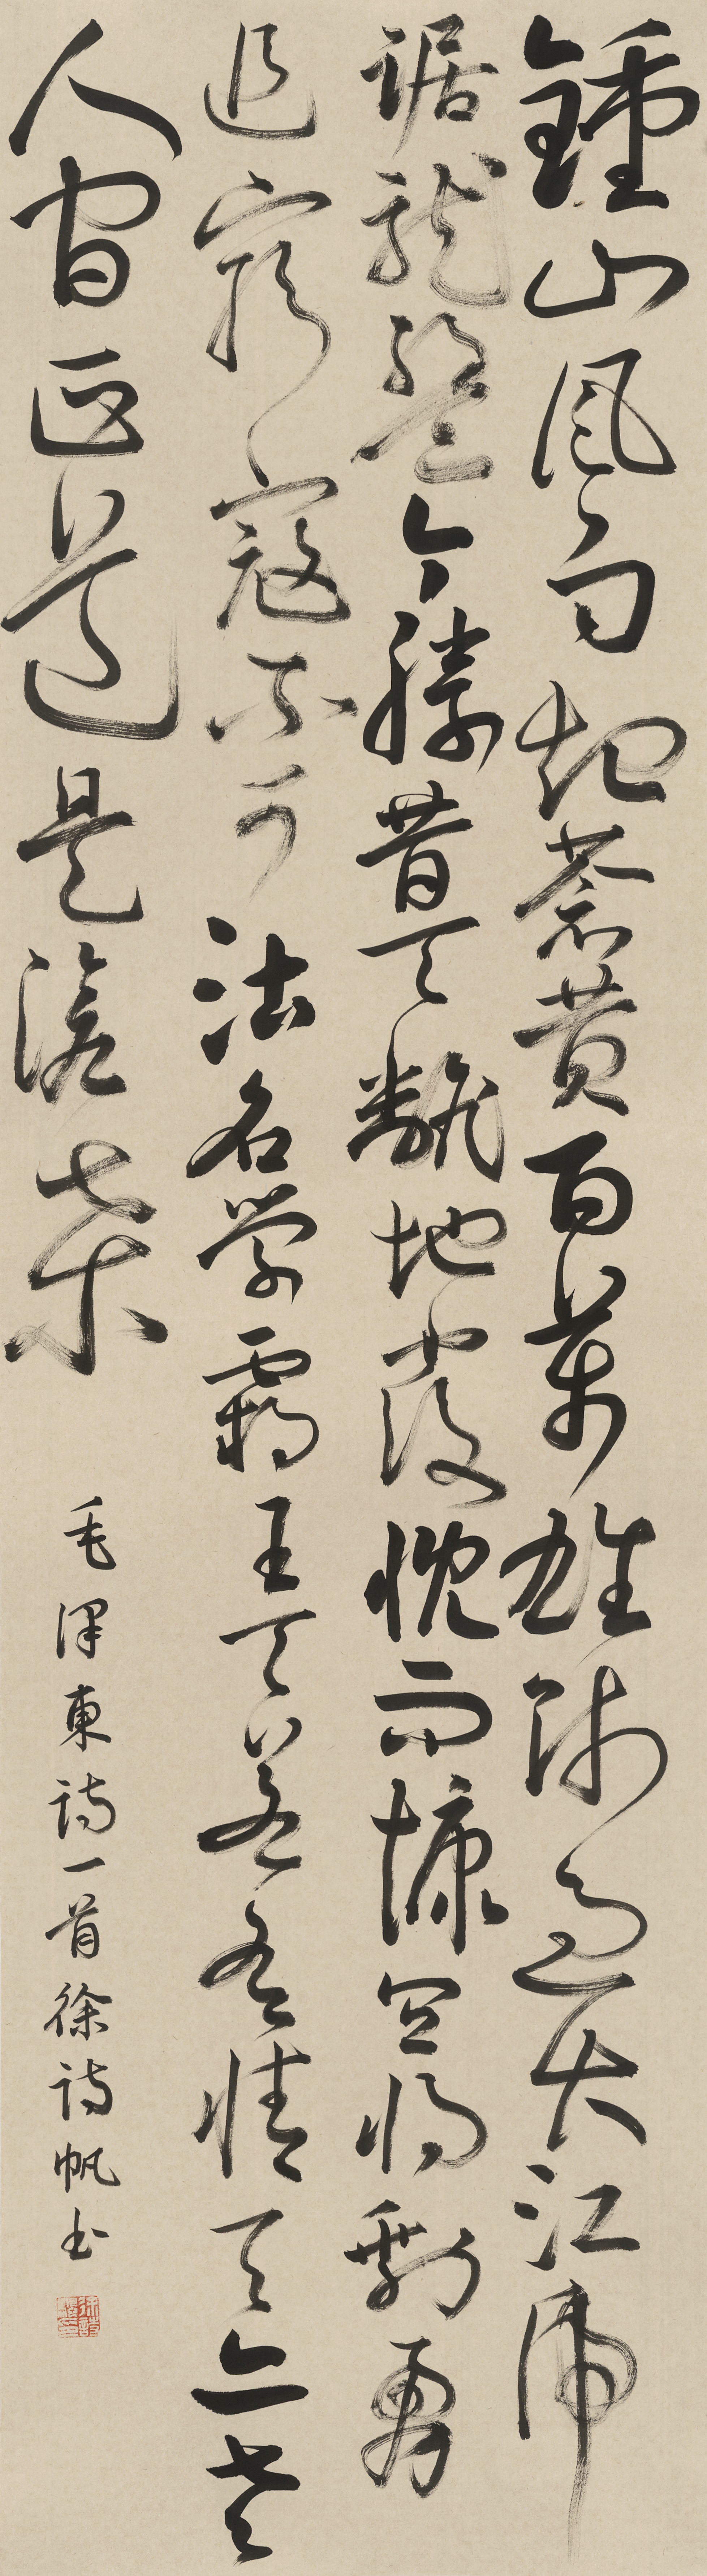 鍾山風雨起蒼黄百萬雄師過大江虎
踞龍盤今勝昔天翻地覆慨而慷宜將剩勇
追窮寇不可沽名学霸王天若有情天亦老
人間正道是滄桑
毛澤東詩一首徐詩帆书